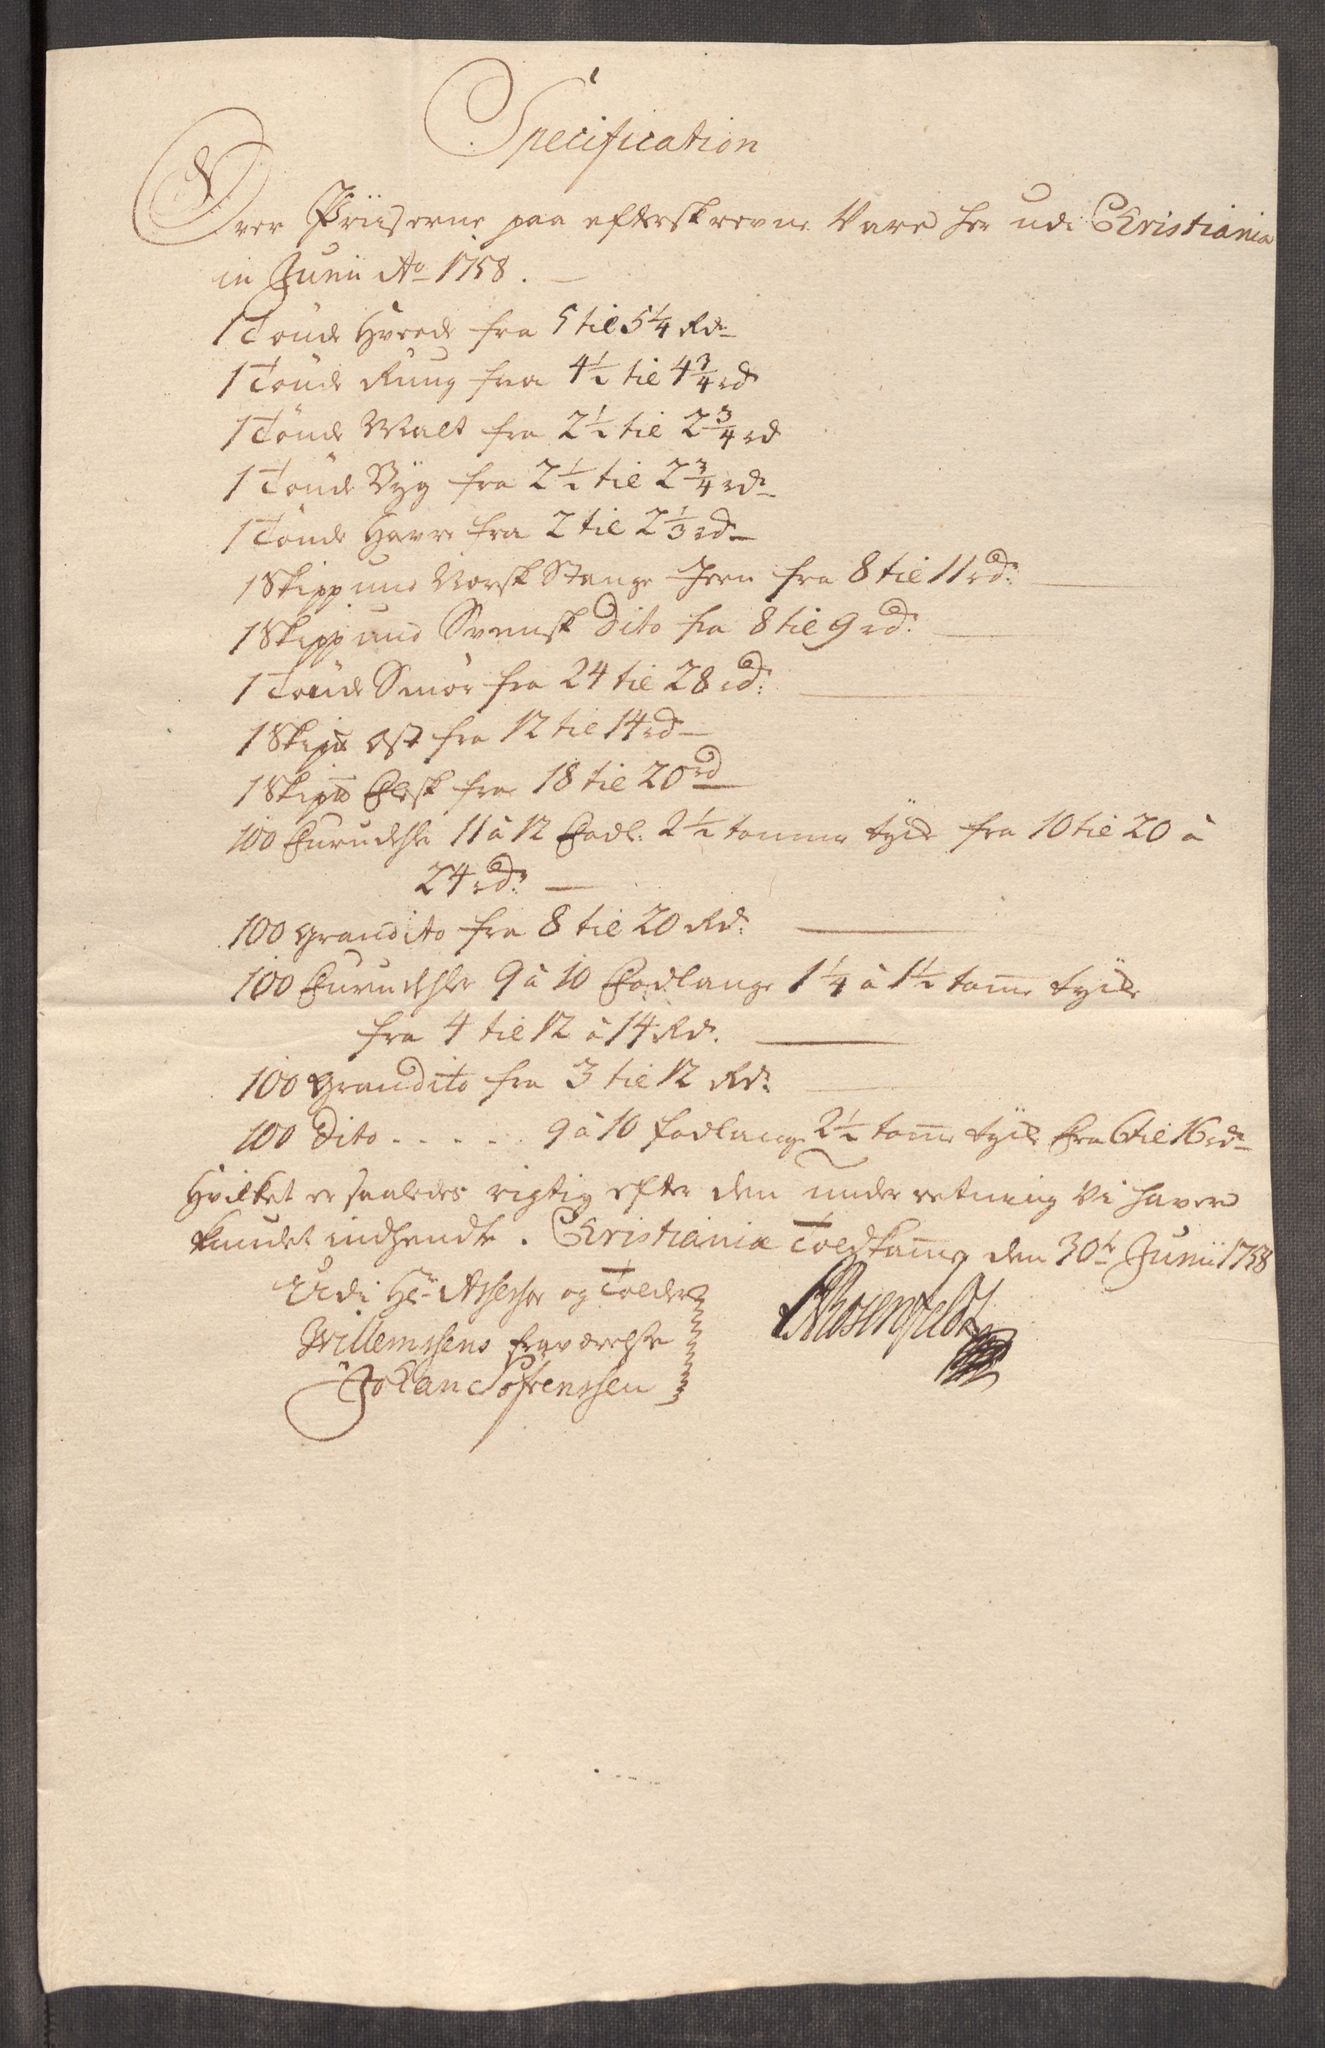 Specification
Over Priiserne paa efterskrevne Vare her udi Christiania
in Junii Ao 1758.
1 Tønde Hvede fra 5 til 5 1/4 Rd
1 Tønde Rung fra 4 1/2 til 4 3/4 rd
1 Tønde Malt fra 2 1/2 til 2 3/4 rd
1 Tønde Byg fra 2 1/2 til 2 3/4 rd
1 Tønde Havre fra 2 til 2 1/3 rd
1 Skippund Norsk Stange Jern fra 8 til 11 rd:
1 Skippund Svensk Dito fra 8 til 9 rd:
1 Tønde Smör fra 24 til 28 rd:
1 Skip℔ Ost fra 12 til 14 rd
1 Skip℔ Flesk fra 18 til 20 rd
100 Furudehler 11 à 12 Fodl: 2 1/2 tomme tyck fra 10 til 20 à
24 rd:
100 Grandito fra 8 til 20 Rd:
100 Furudehler 9 à 10 Fodlange 1 1/4 à 1 1/2 tom̅e tyck
fra 4 til 12 à 14 Rd:
100 Grandito fra 3 til 12 Rd:
100 Dito - - - - - 9 à 10 fodlange 2 1/2 tom̅e tyck fra 6 til 16 rd
Hvilket er saaledes rigtig efter den underretning Vi haver
kundet indhendte. Christiania Toldkam̅er den 30te Junii 1758
Udi Hr Assessor og Tolder
Willemssens fraværelse
Johan Søfrenssen
Rosenfeldt